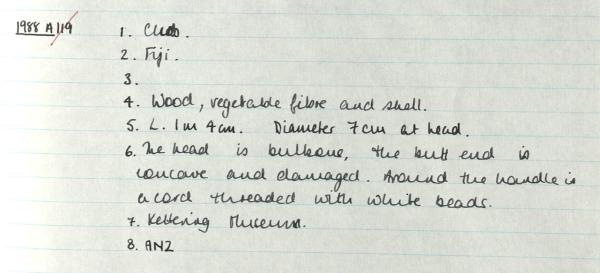 1988 A119
1. Club.
2. Fiji.
3.
4. Wood, vegetable fibre and shell.
5. L. 1m 4cm. Diameter 7cm at head.
6. The head is bulbous, the butt end is
concave and damaged. Around the handle is
a cord threaded with white beads.
7. Kettering Museum.
8. ANZ